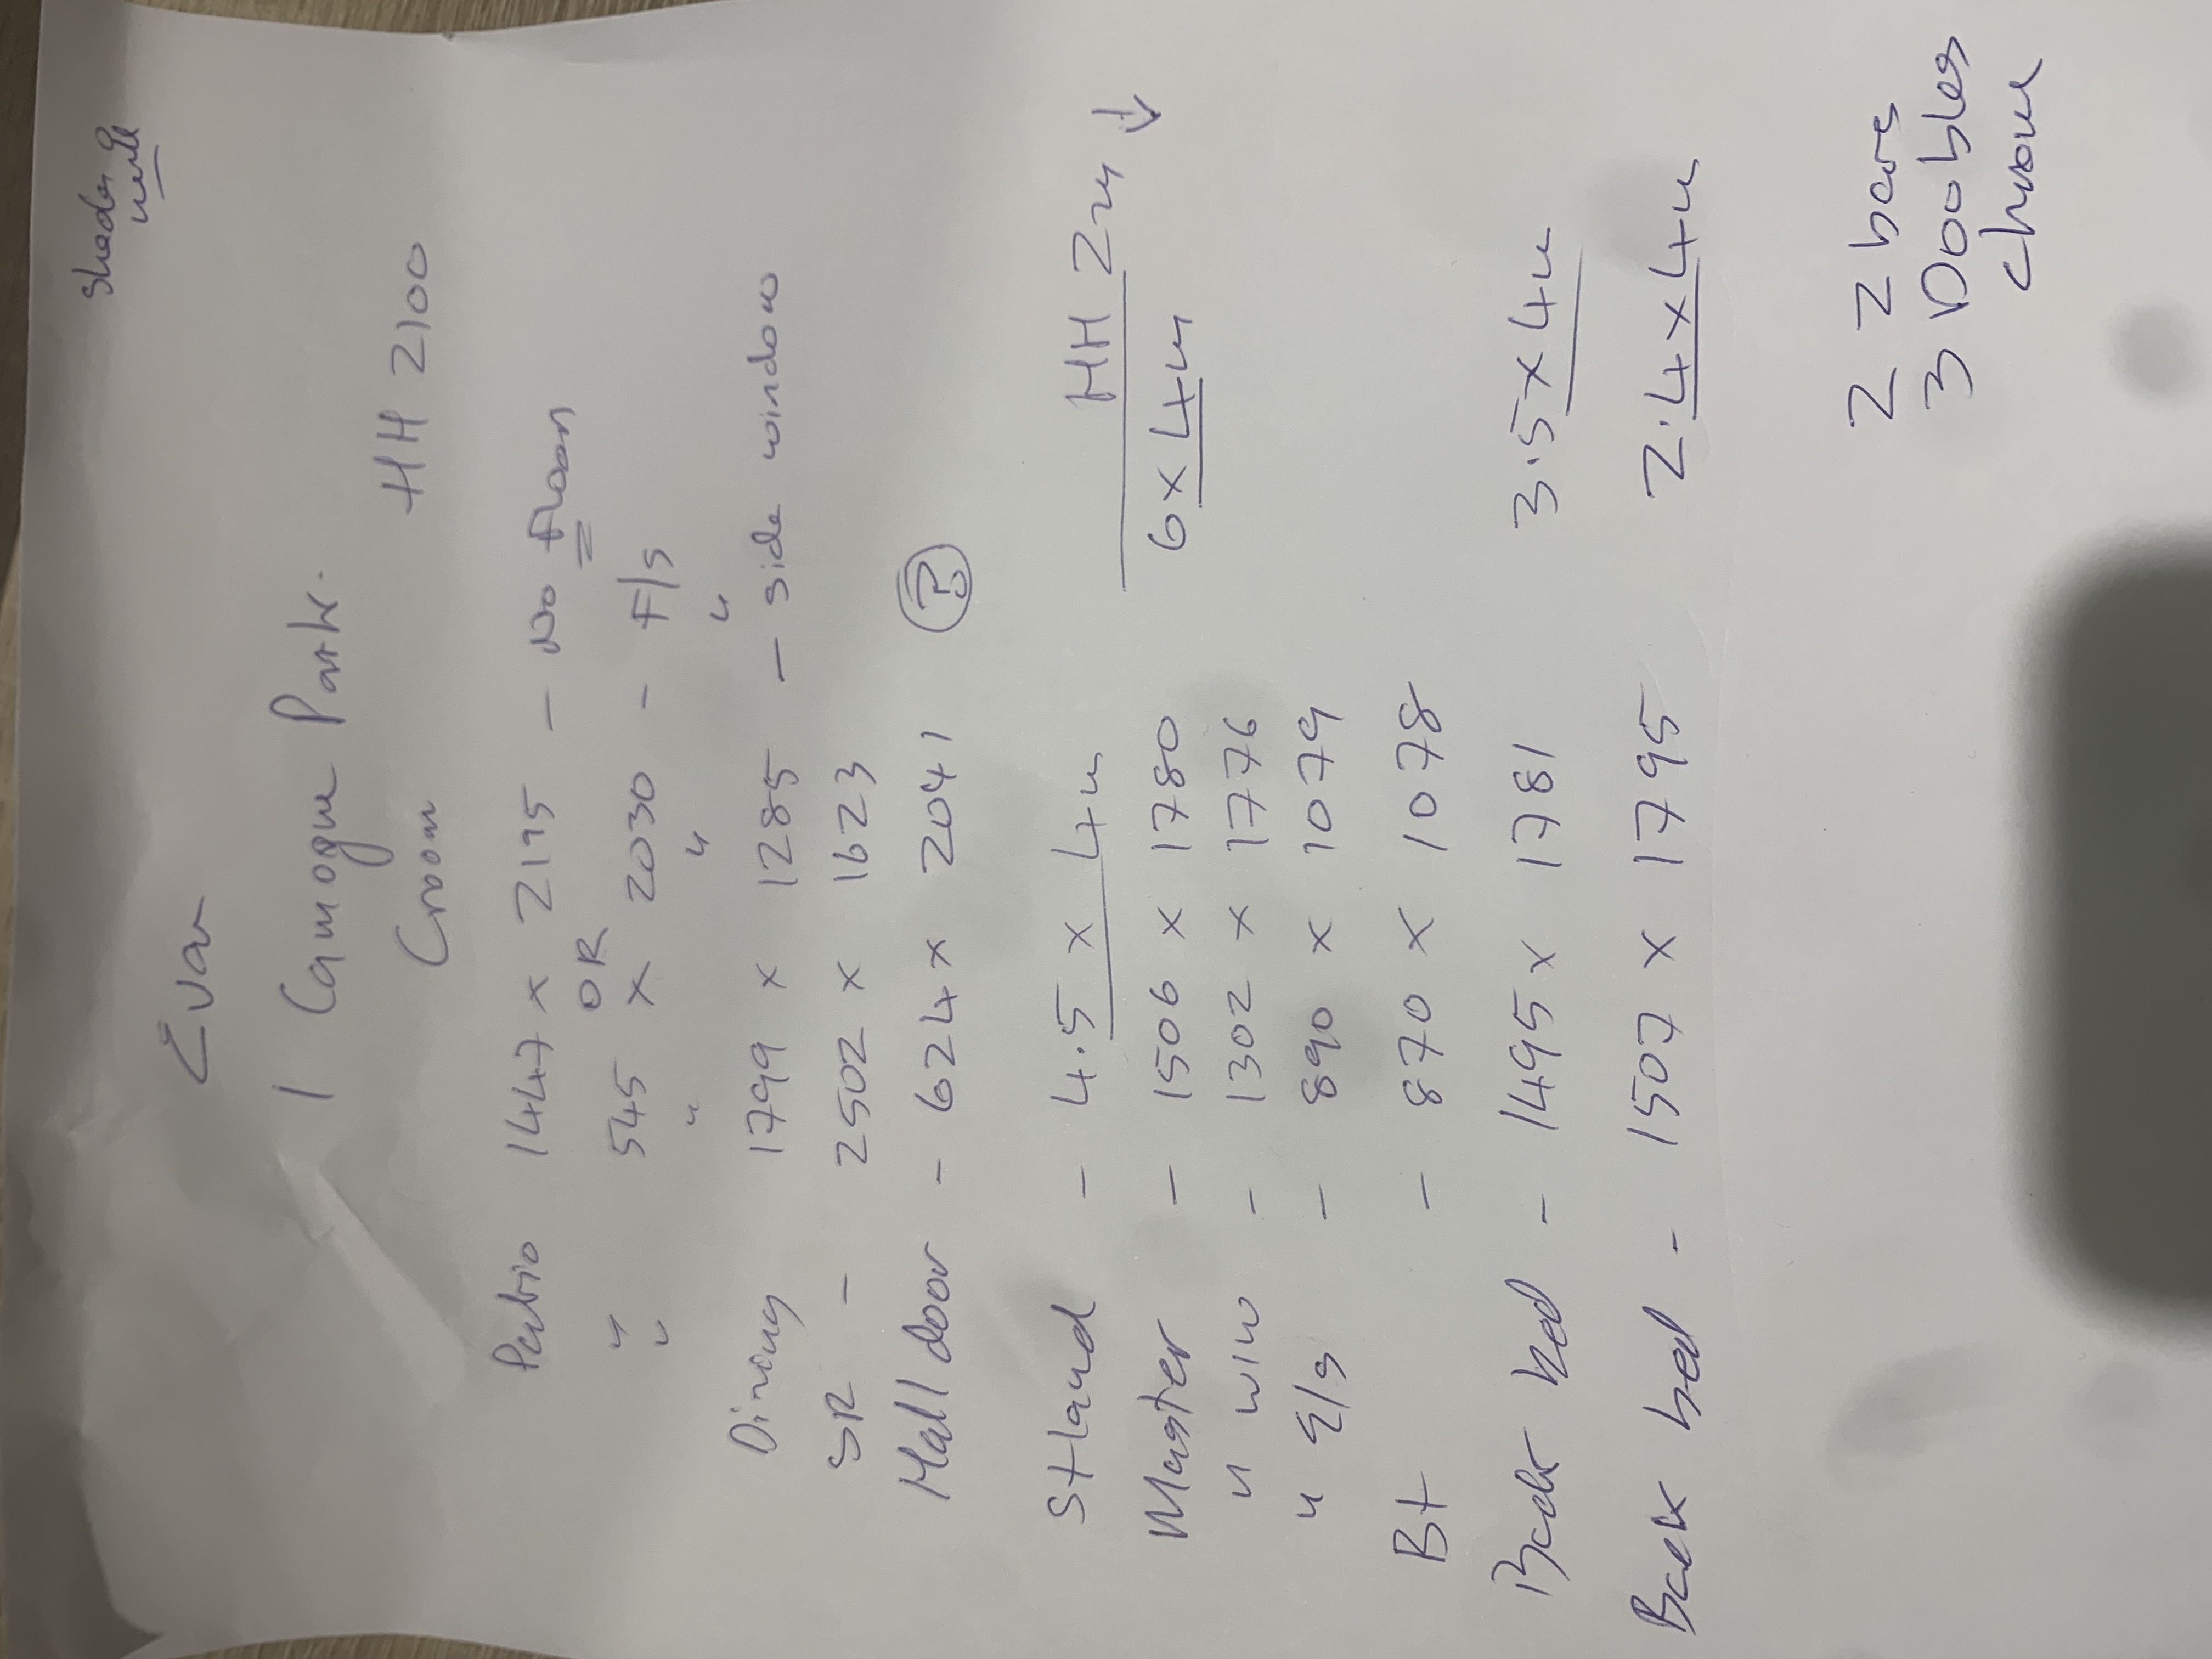 Shades
Evar
1 Camogue Park.
Croom HH 2100
Patio 1447 x 2195 - No Floor
OR
" 545 x 2030 - F/s
" " " "
Dining 1799 x 1285 - side window
SR - 2502 x 1623
Hall door - 624 x 2041 B
St land - 4.5 x 4m HH 2m ↓
Master - 1506 x 1780 6 x 4m
" win - 1302 x 1776
" E/s - 890 x 1079
Bt - 870 x 1078
Back bed - 1495 x 1781 3.5 x 4m
Back bed - 1507 x 1795 2.4 x 4m
2 2 bars
3 Doobles
chrome